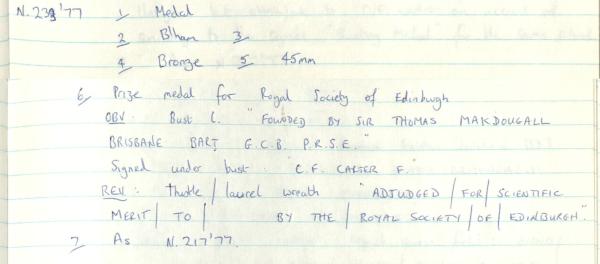 N. 233 '77 1/ Medal
2/ B'ham 3/
4/ Bronze 5/ 45mm
6/ Prize medal for Royal Society of Edinburgh
OBV. Bust L. "FOUNDED BY SIR THOMAS MAKDOUGALL
BRISBANE BART G.C.B. P.R.S.E."
Signed under bust. "C.F. CARTER F."
REV: thistle / laurel wreath "ADJUDGED / FOR / SCIENTIFIC
MERIT / TO / BY THE / ROYAL SOCIETY / OF / EDINBURGH."
7/ As N. 217 '77.